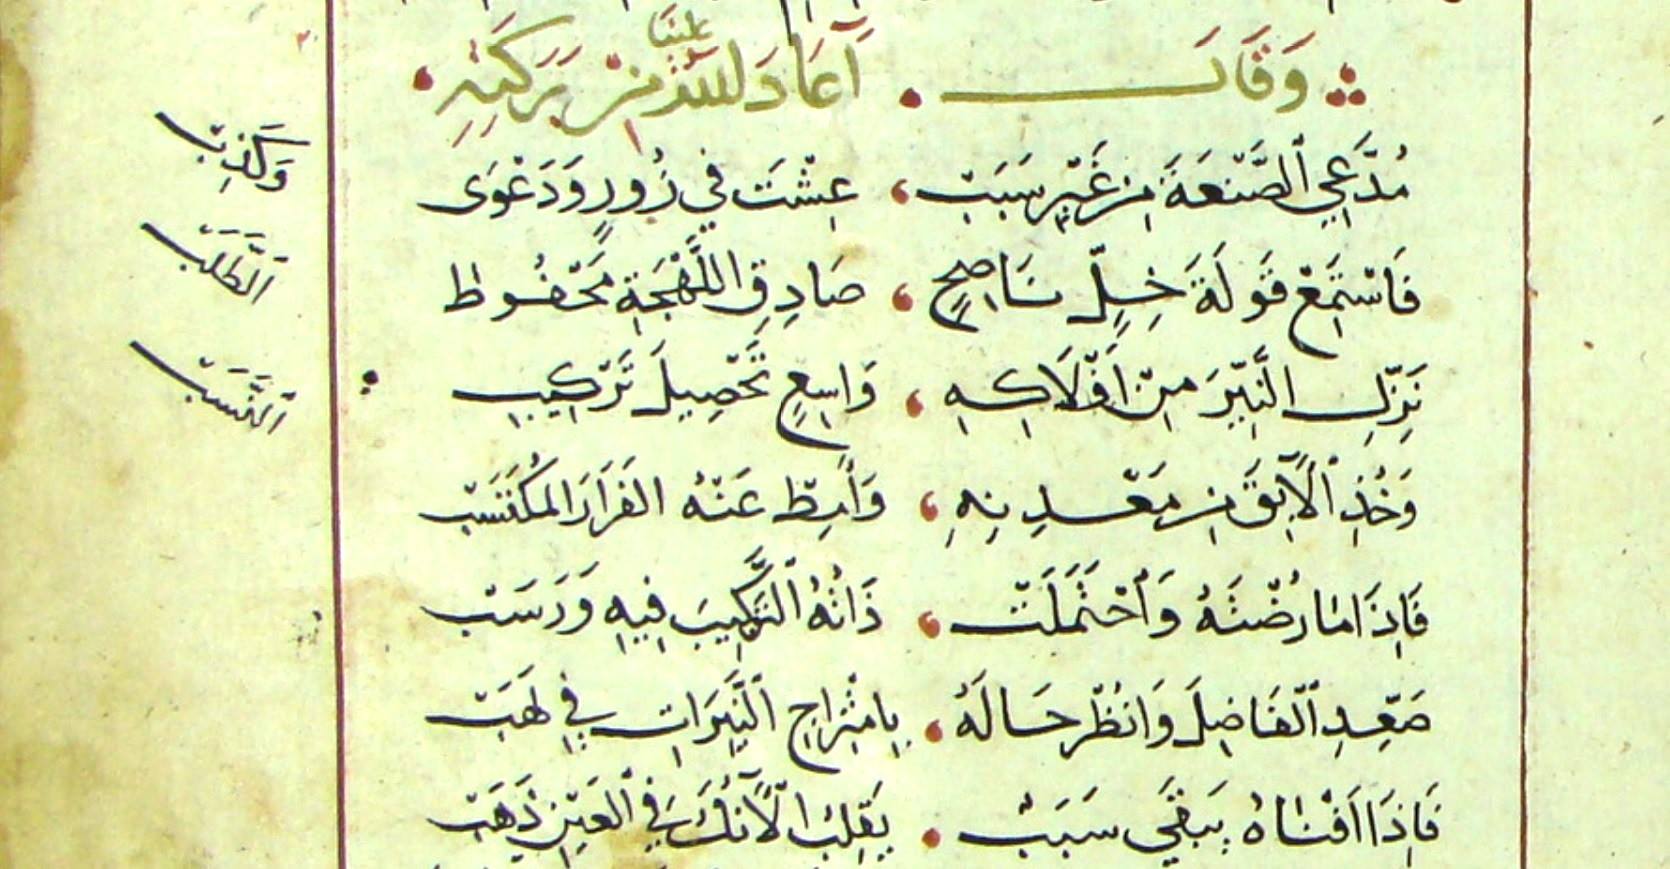 وَقَالَ . أَعَادَ اللَّهُ عَلَيْنَا مِنْ بَرَكَتِهِ .
مُدَّعِي الصَّنْعَةَ مِنْ غَيْرِ سَبَبْ ، عِشْتَ فِي زُورٍ وَدَعْوَى وَكَذِبْ
فَاسْتَمِعْ قَوْلَةَ خِلٍّ نَاصِحٍ ، صَادِقِ اللَّهْجَةِ مَحْفُوظ الطَّلَبْ
نَزِّلِ النَّيِّرَ مِنْ اَفْلَاكِهِ ، وَاسِعِ تَحْصِيلَ تَرْكِيبِ النَّسَبْ
وَخُذِ الْآبِقَ مِنْ مَعْدِنِهِ ، وَأَمِطْ عَنْهُ الغَرَارَ المُكْتَسَبْ
فَإِذَا مَا رُضْتَهُ وَاحْتَمَلَتْ ، ذَاتُهُ التَّرْكِيبَ فِيهِ وَرَسَبْ
صَعِّدِ الْفَاضِلَ وَانْظُرْ حَالَهُ ، بِامْتِزَاجِ النَّيِّرَاتِ فِي لَهَبْ
فَإِذَا اَفْنَاهُ يَبْقَى سَبَبْ . يَقْلِبُ الْآنُكَ فِي الْعَيْنِ ذَهَبْ